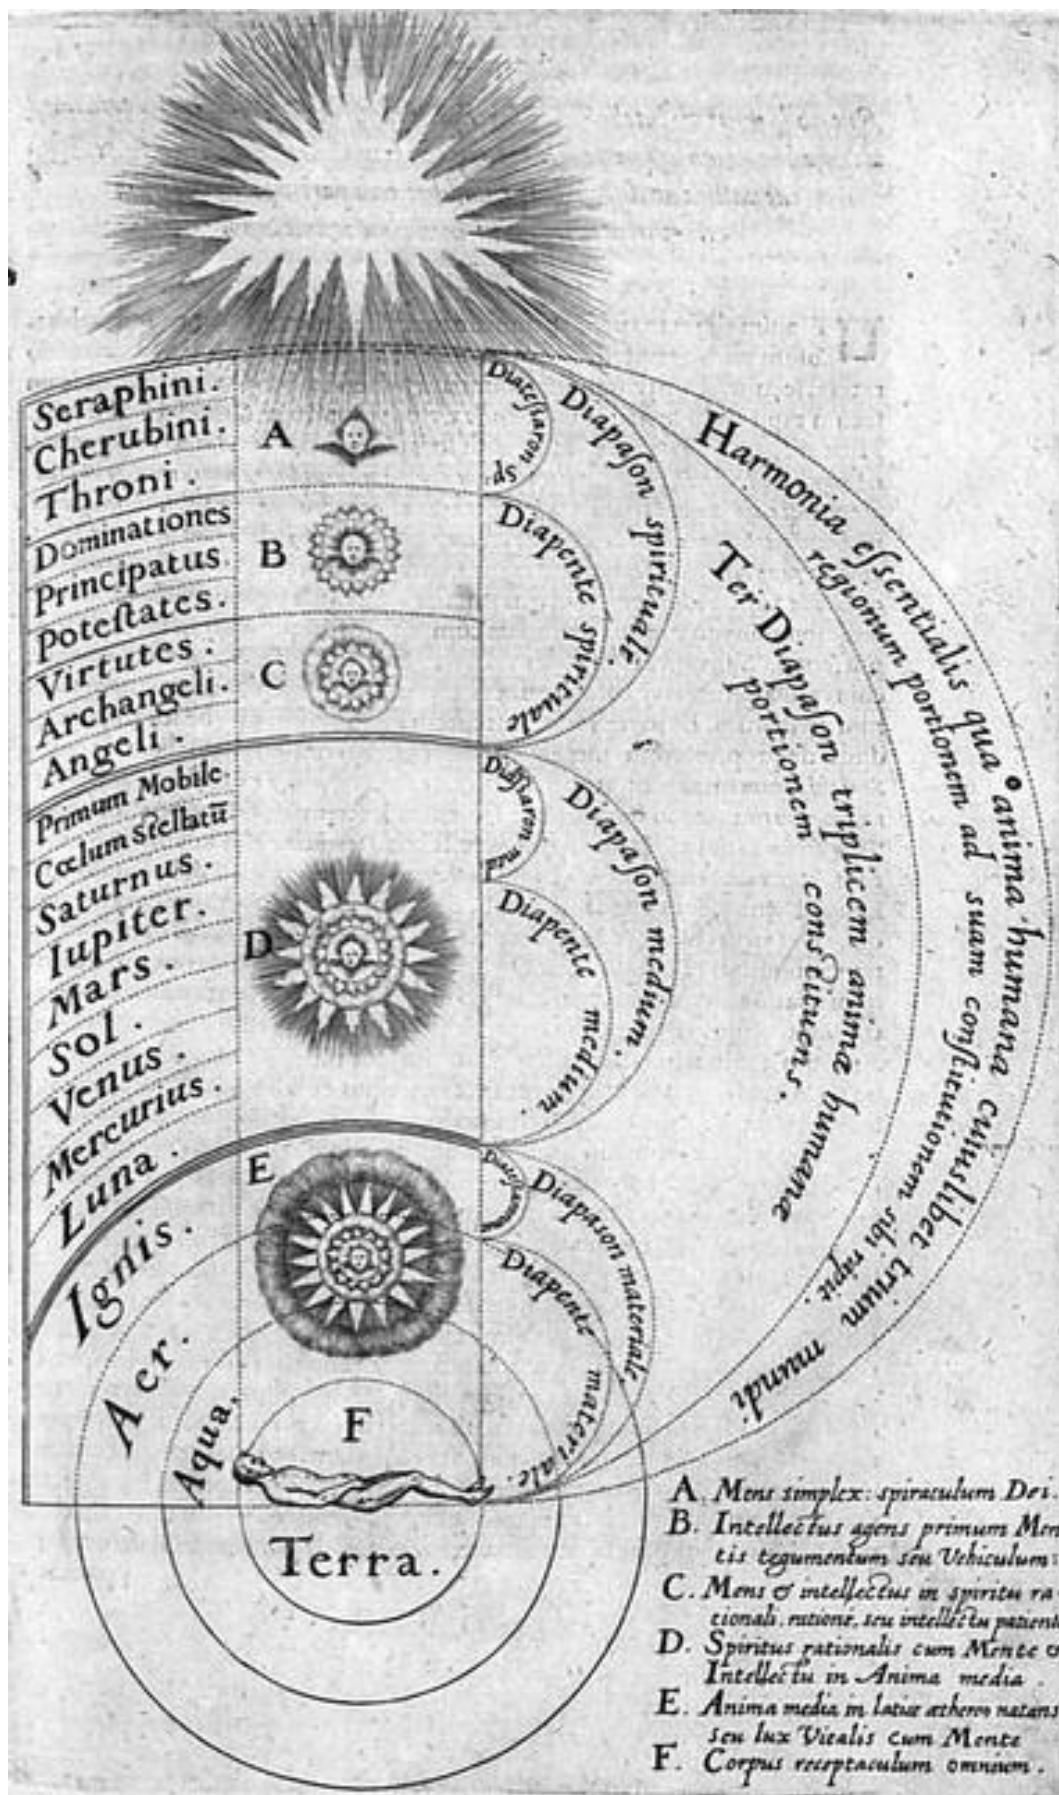 Seraphini.
Cherubini.
Throni.
Dominationes
Principatus.
Poteſtates.
Virtutes.
Archangeli.
Angeli.
Primum Mobile.
Cœlum Stellatū
Saturnus.
Iupiter.
Mars.
Sol.
Venus.
Mercurius.
Luna.
Ignis.
Aer.
Aqua.
Terra.
A
B
C
D
E
F
Diateſſaron sp.
Diapaſon spirituale.
Diapente spirituale
Diapaſon medium.
Diapente medium.
Diapason materiale
Diapente materiale.
Ter Diapaſon triplicem animæ humanæ
portionem constituens.
Harmonia eſsentialis qua anima humana cuiuslibet trium mundi
regionum portionem ad suam conſtitutionem sibi rapit.
A. Mens simplex: spiraculum Dei.
B. Intellectus agens primum Men
tis tegumentum seu Vehiculum:
C. Mens & intellectus in spiritu ra-
tionali, ratione, seu intellectu patiente
D. Spiritus rationalis cum Mente &
Intellectu in Anima media.
E. Anima media in æthereo natans
seu lux Vitalis cum Mente
F. Corpus receptaculum omnium.